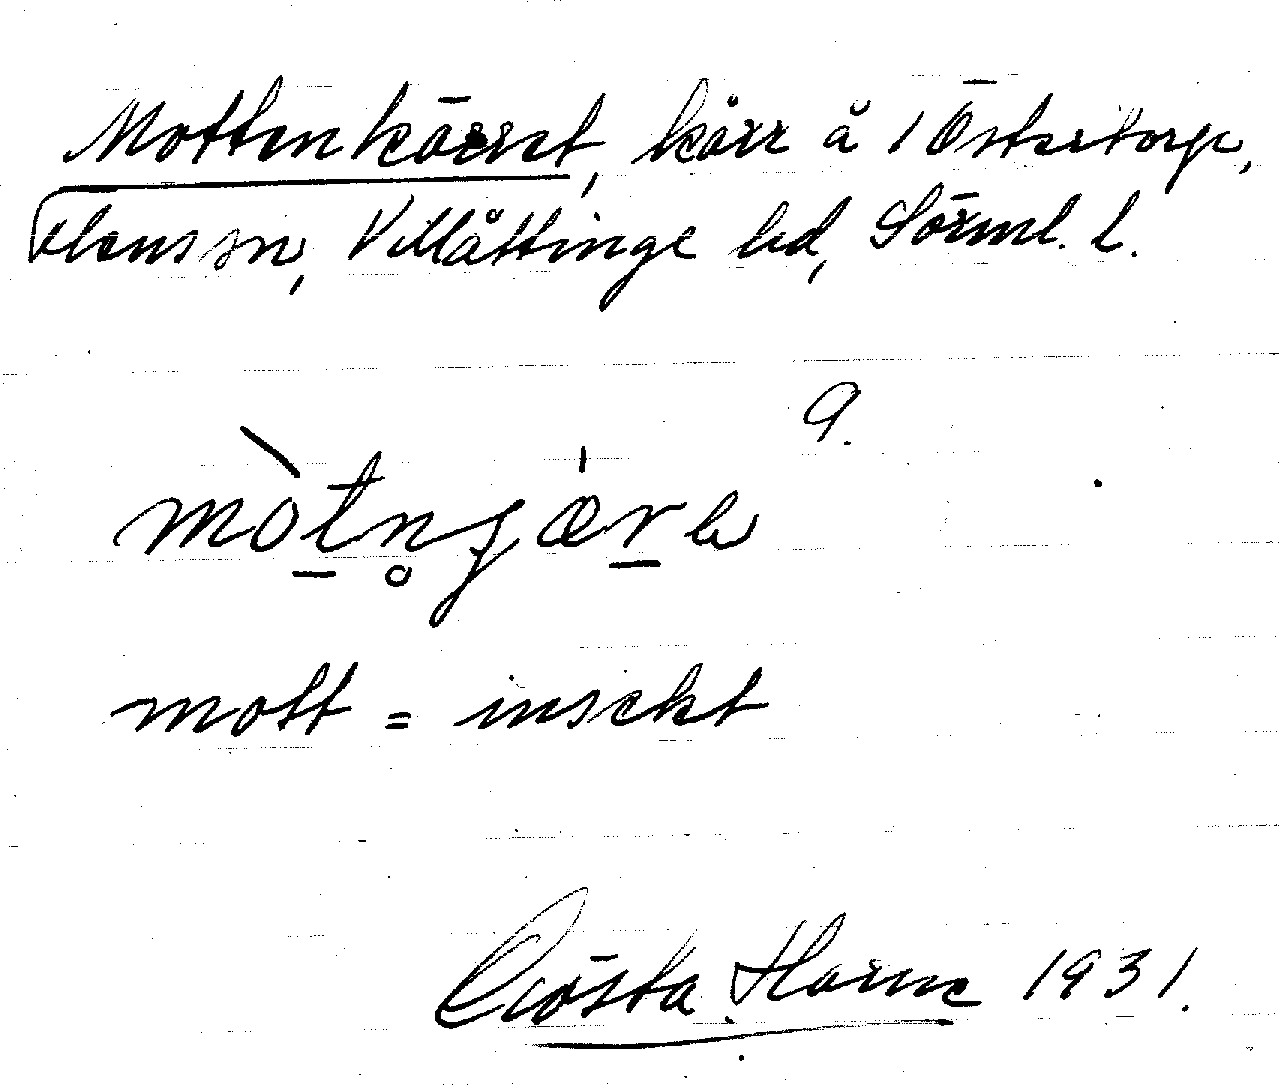 Mottenkärret, kärr å 1 Östertorp,
Flenssn, Villåttinge hd, Sörml. l.
9.
mòt̠n̥çær̠ə
mott = insekt
Gösta Horne 1931.